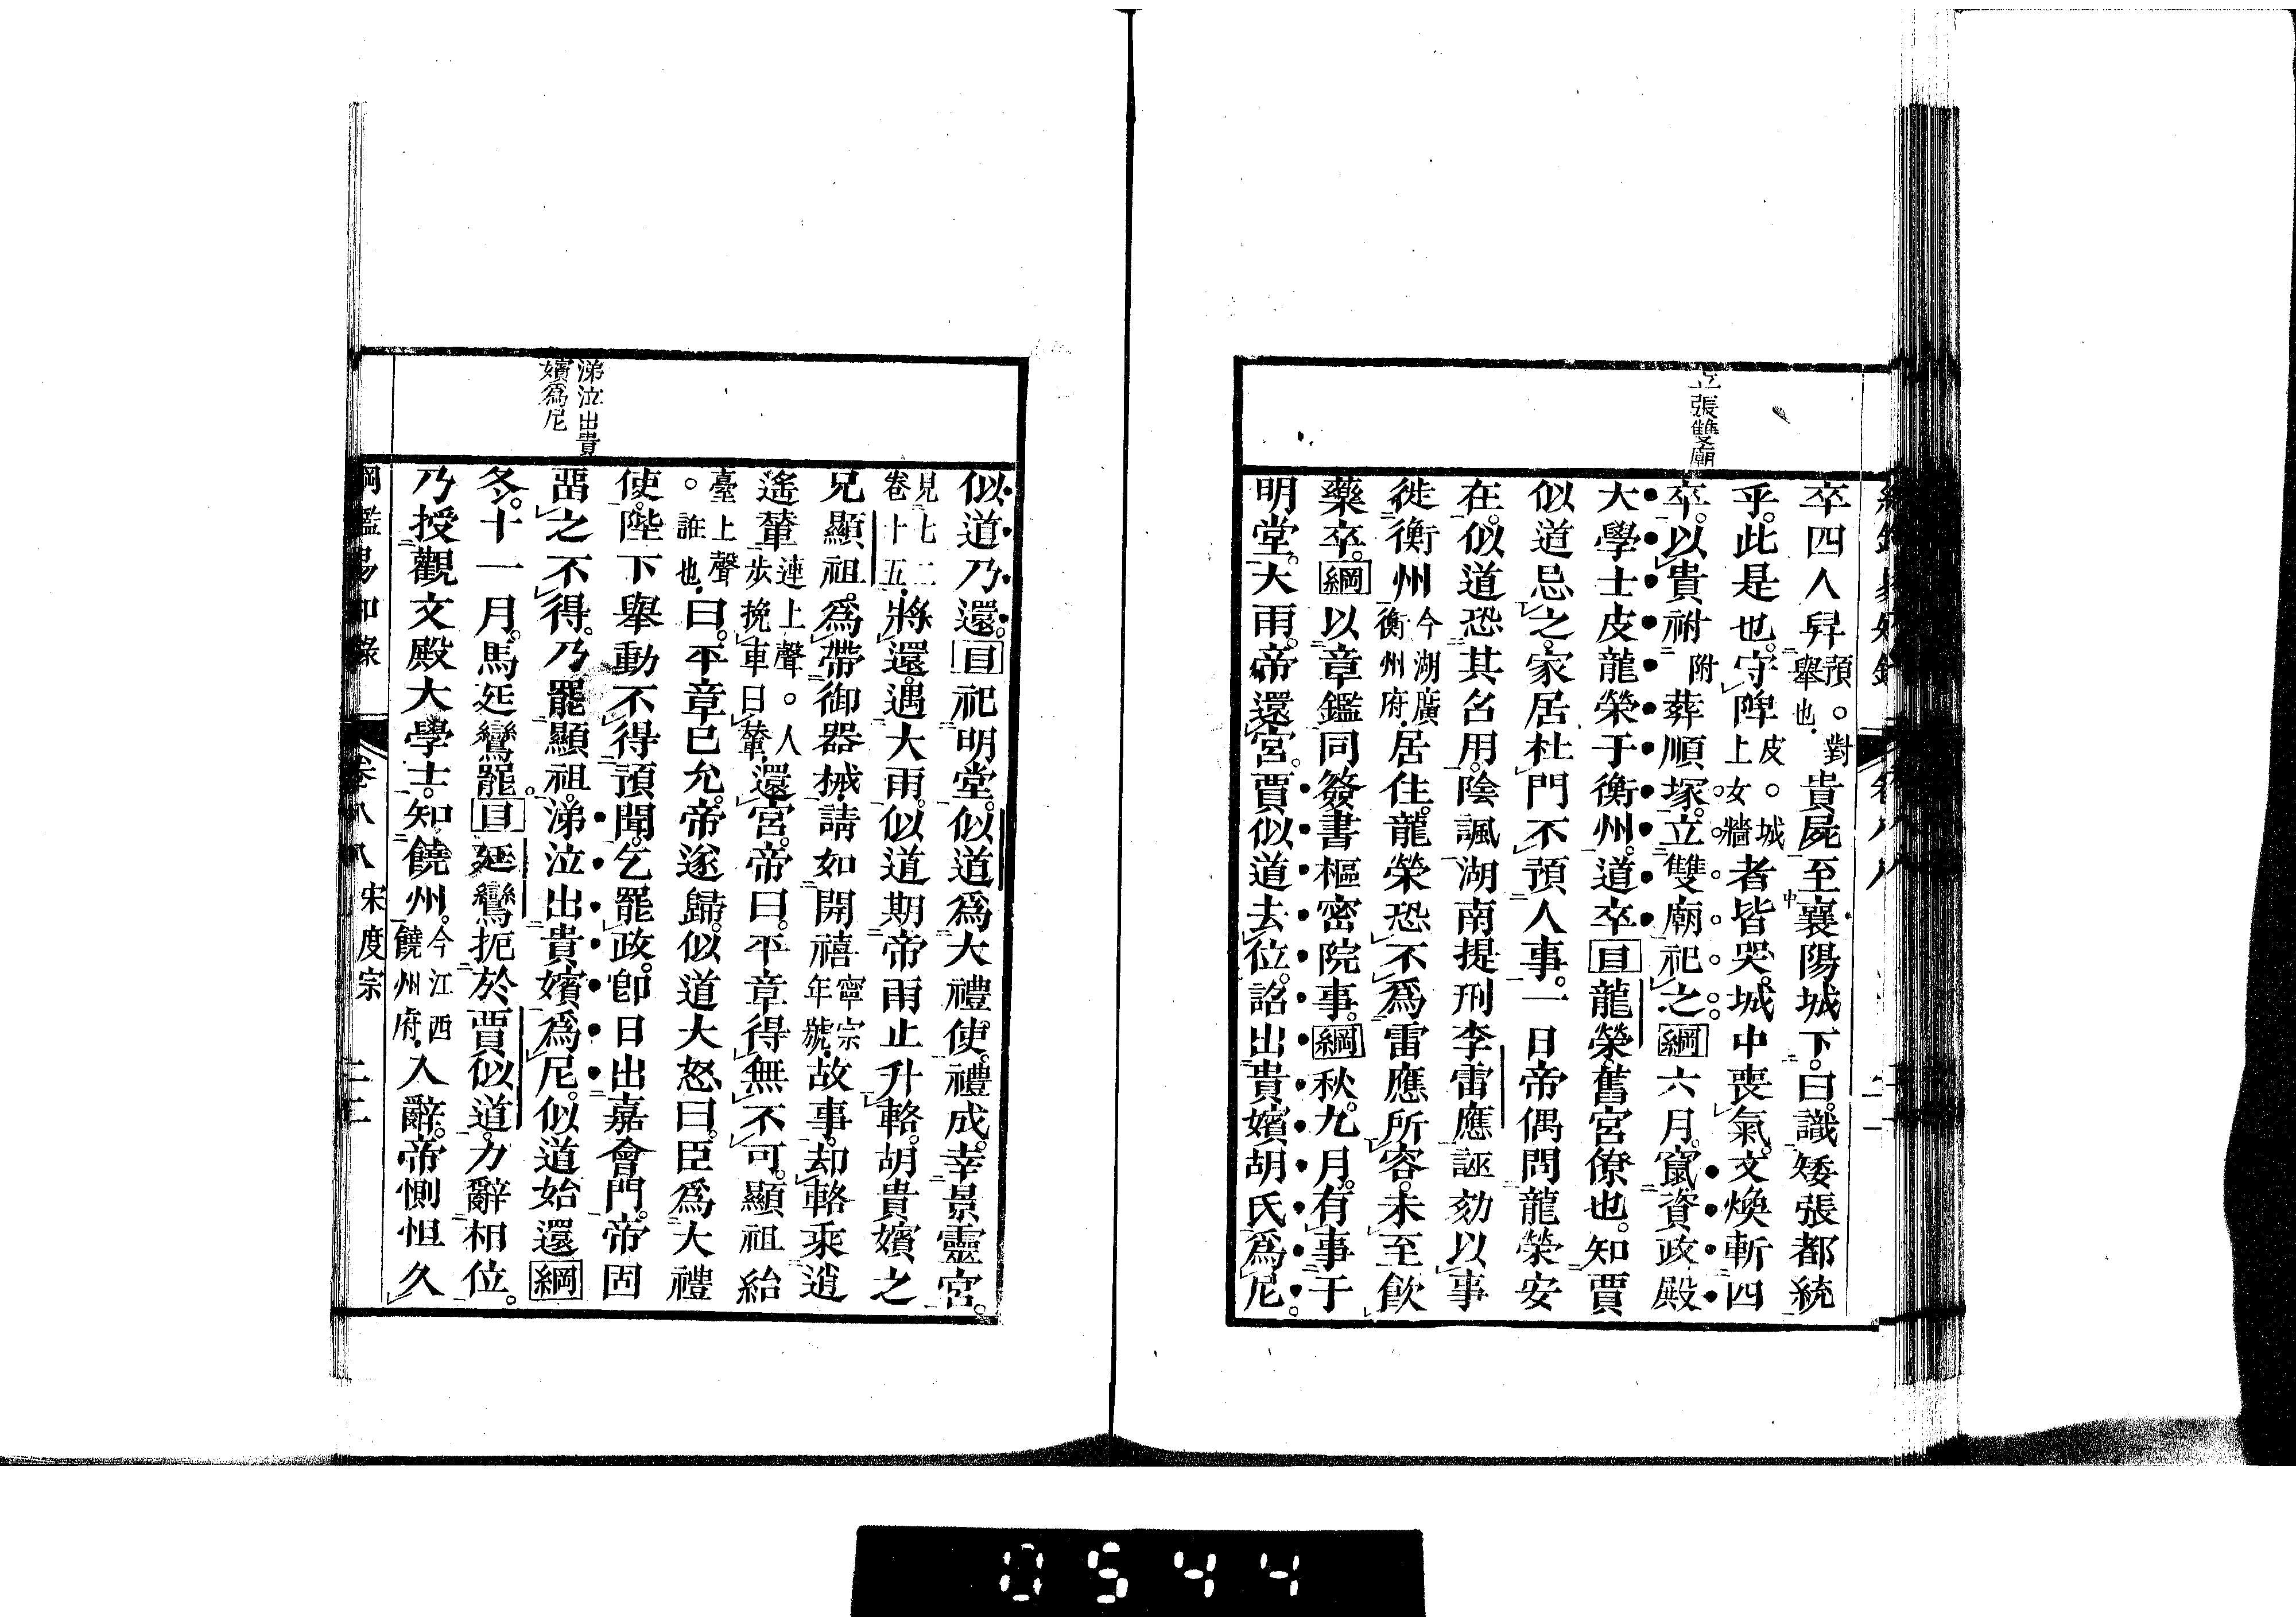 立張雙廟
卒四人舁預。對舉也貴屍至襄陽城下。曰識矮張都統
乎。此是也。守陴皮。城上女牆者皆哭。城中喪氣。文煥斬四
卒。以貴祔附葬順塚。立雙廟祀之綱六月。竄資政殿
大學士皮龍榮于衡州。道卒目龍榮舊宮僚也。知賈
似道忌之。家居杜門不預人事。一日帝偶問龍榮安
在。似道恐其召用。陰諷湖南提刑李雷應誣劾以事
徙衡州今湖廣衡州府居住。龍榮恐不爲雷應所容。未至飲
藥卒。綱以章鑑同簽書樞密院事。綱秋。九月。有事于
明堂。大雨。帝還宮。賈似道去位。詔出貴嬪胡氏爲尼。
涕泣出貴
嬪爲尼
似道乃還。目祀明堂。似道爲大禮使。禮成。幸景靈宮。
見七二卷十五將還。遇大雨。似道期帝雨止升輅。胡貴嬪之
兄顯祖。爲帶御器械。請如開禧寧宗年號故事。却輅乘逍
遙輦連上聲。人步挽車曰輦還宮。帝曰。平章得無不可。顯祖紿
臺上聲。誰也曰。平章已允。帝遂歸。似道大怒曰。臣爲大禮
使。陛下舉動不得預聞。乞罷政。卽日出嘉會門。帝固
畱之不得。乃罷顯祖。涕泣出貴嬪爲尼。似道始還綱
冬。十一月。馬廷鸞罷。目廷鸞扼於賈似道。力辭相位。
乃授觀文殿大學士。知饒州。今江西饒州府入辭。帝惻怛久
綱鑑易知錄 卷八八 宋度宗 二二
0544